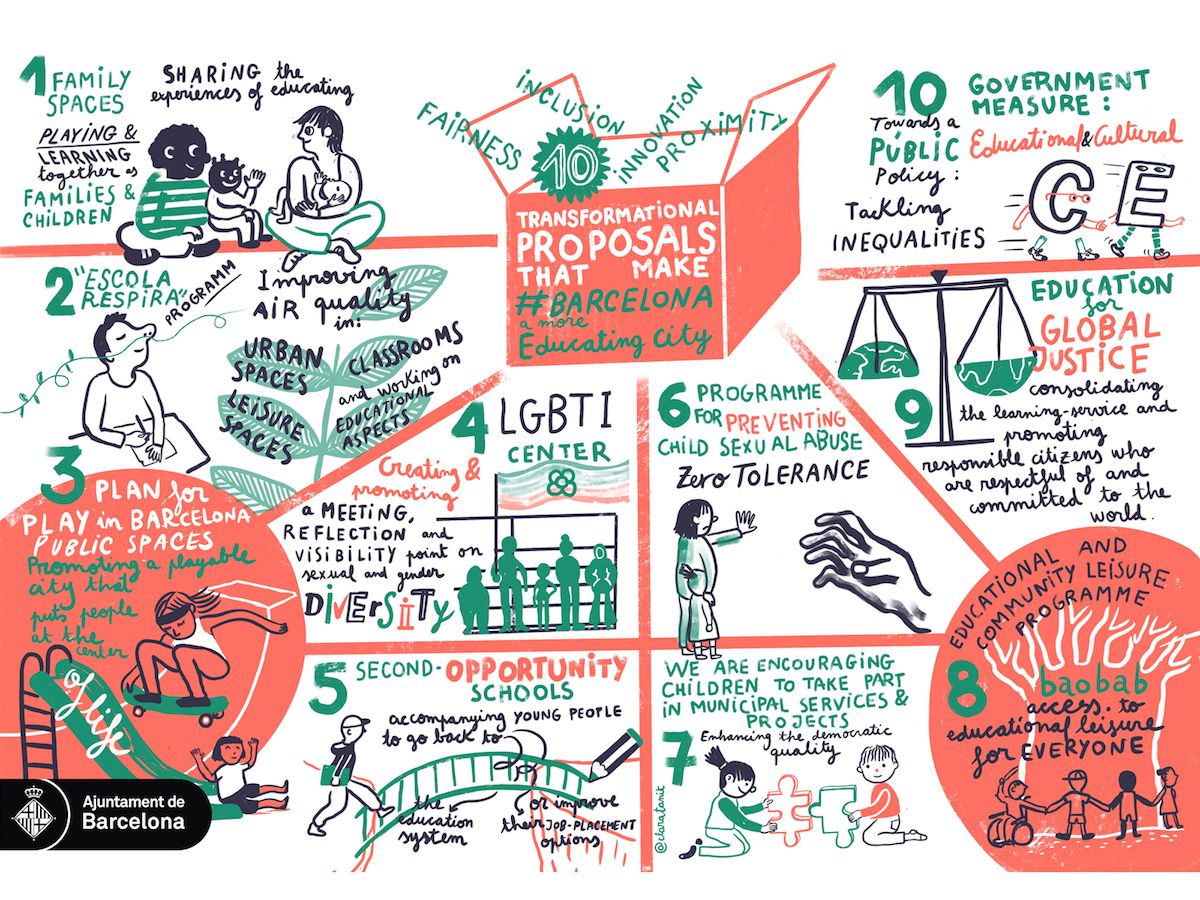 FAIRNESS
INCLUSION
INNOVATION
PROXIMITY
10
TRANSFORMATIONAL
PROPOSALS
THAT MAKE
#BARCELONA
a more
Educating City
1 FAMILY
SPACES
PLAYING &
LEARNING
together as
FAMILIES &
CHILDREN
SHARING the
experiences of educating
2 "ESCOLA
RESPIRA"
PROGRAMM
Improving
AIR quality
in:
URBAN
SPACES
CLASSROOMS
LEISURE
SPACES
and working on
EDUCATIONAL
ASPECTS
3
PLAN for
PLAY in BARCELONA
PUBLIC SPACES
Promoting a playable
city that
puts people
at the
center
of life
4 LGBTI
CENTER
Creating &
promoting
a MEETING,
REFLECTION and
VISIBILITY point on
sexual and gender
DIVERSIITY
5 SECOND-OPPORTUNITY
SCHOOLS
accompanying YOUNG PEOPLE
to go back to
the
education
system
or improve
their JOB-PLACEMENT
options
6 PROGRAMME
FOR PREVENTING
CHILD SEXUAL ABUSE
Zero TOLERANCE
WE ARE ENCOURAGING
CHILDREN TO TAKE PART
IN MUNICIPAL SERVICES &
PROJECTS
7 Enhancing the democratic
quality
@claratanit
EDUCATIONAL AND
COMMUNITY LEISURE
PROGRAMME
8 baobab
access to
educational leisure
for EVERYONE
EDUCATION
for
GLOBAL
JUSTICE
9
consolidating
the learning-service and
promoting
responsible citizens who
are respectful of and
committed to the
world.
10 GOVERNMENT
MEASURE:
Towards a
PÚBLIC
Policy:
Educational & Cultural
Tackling
INEQUALITIES
C E
Ajuntament de
Barcelona